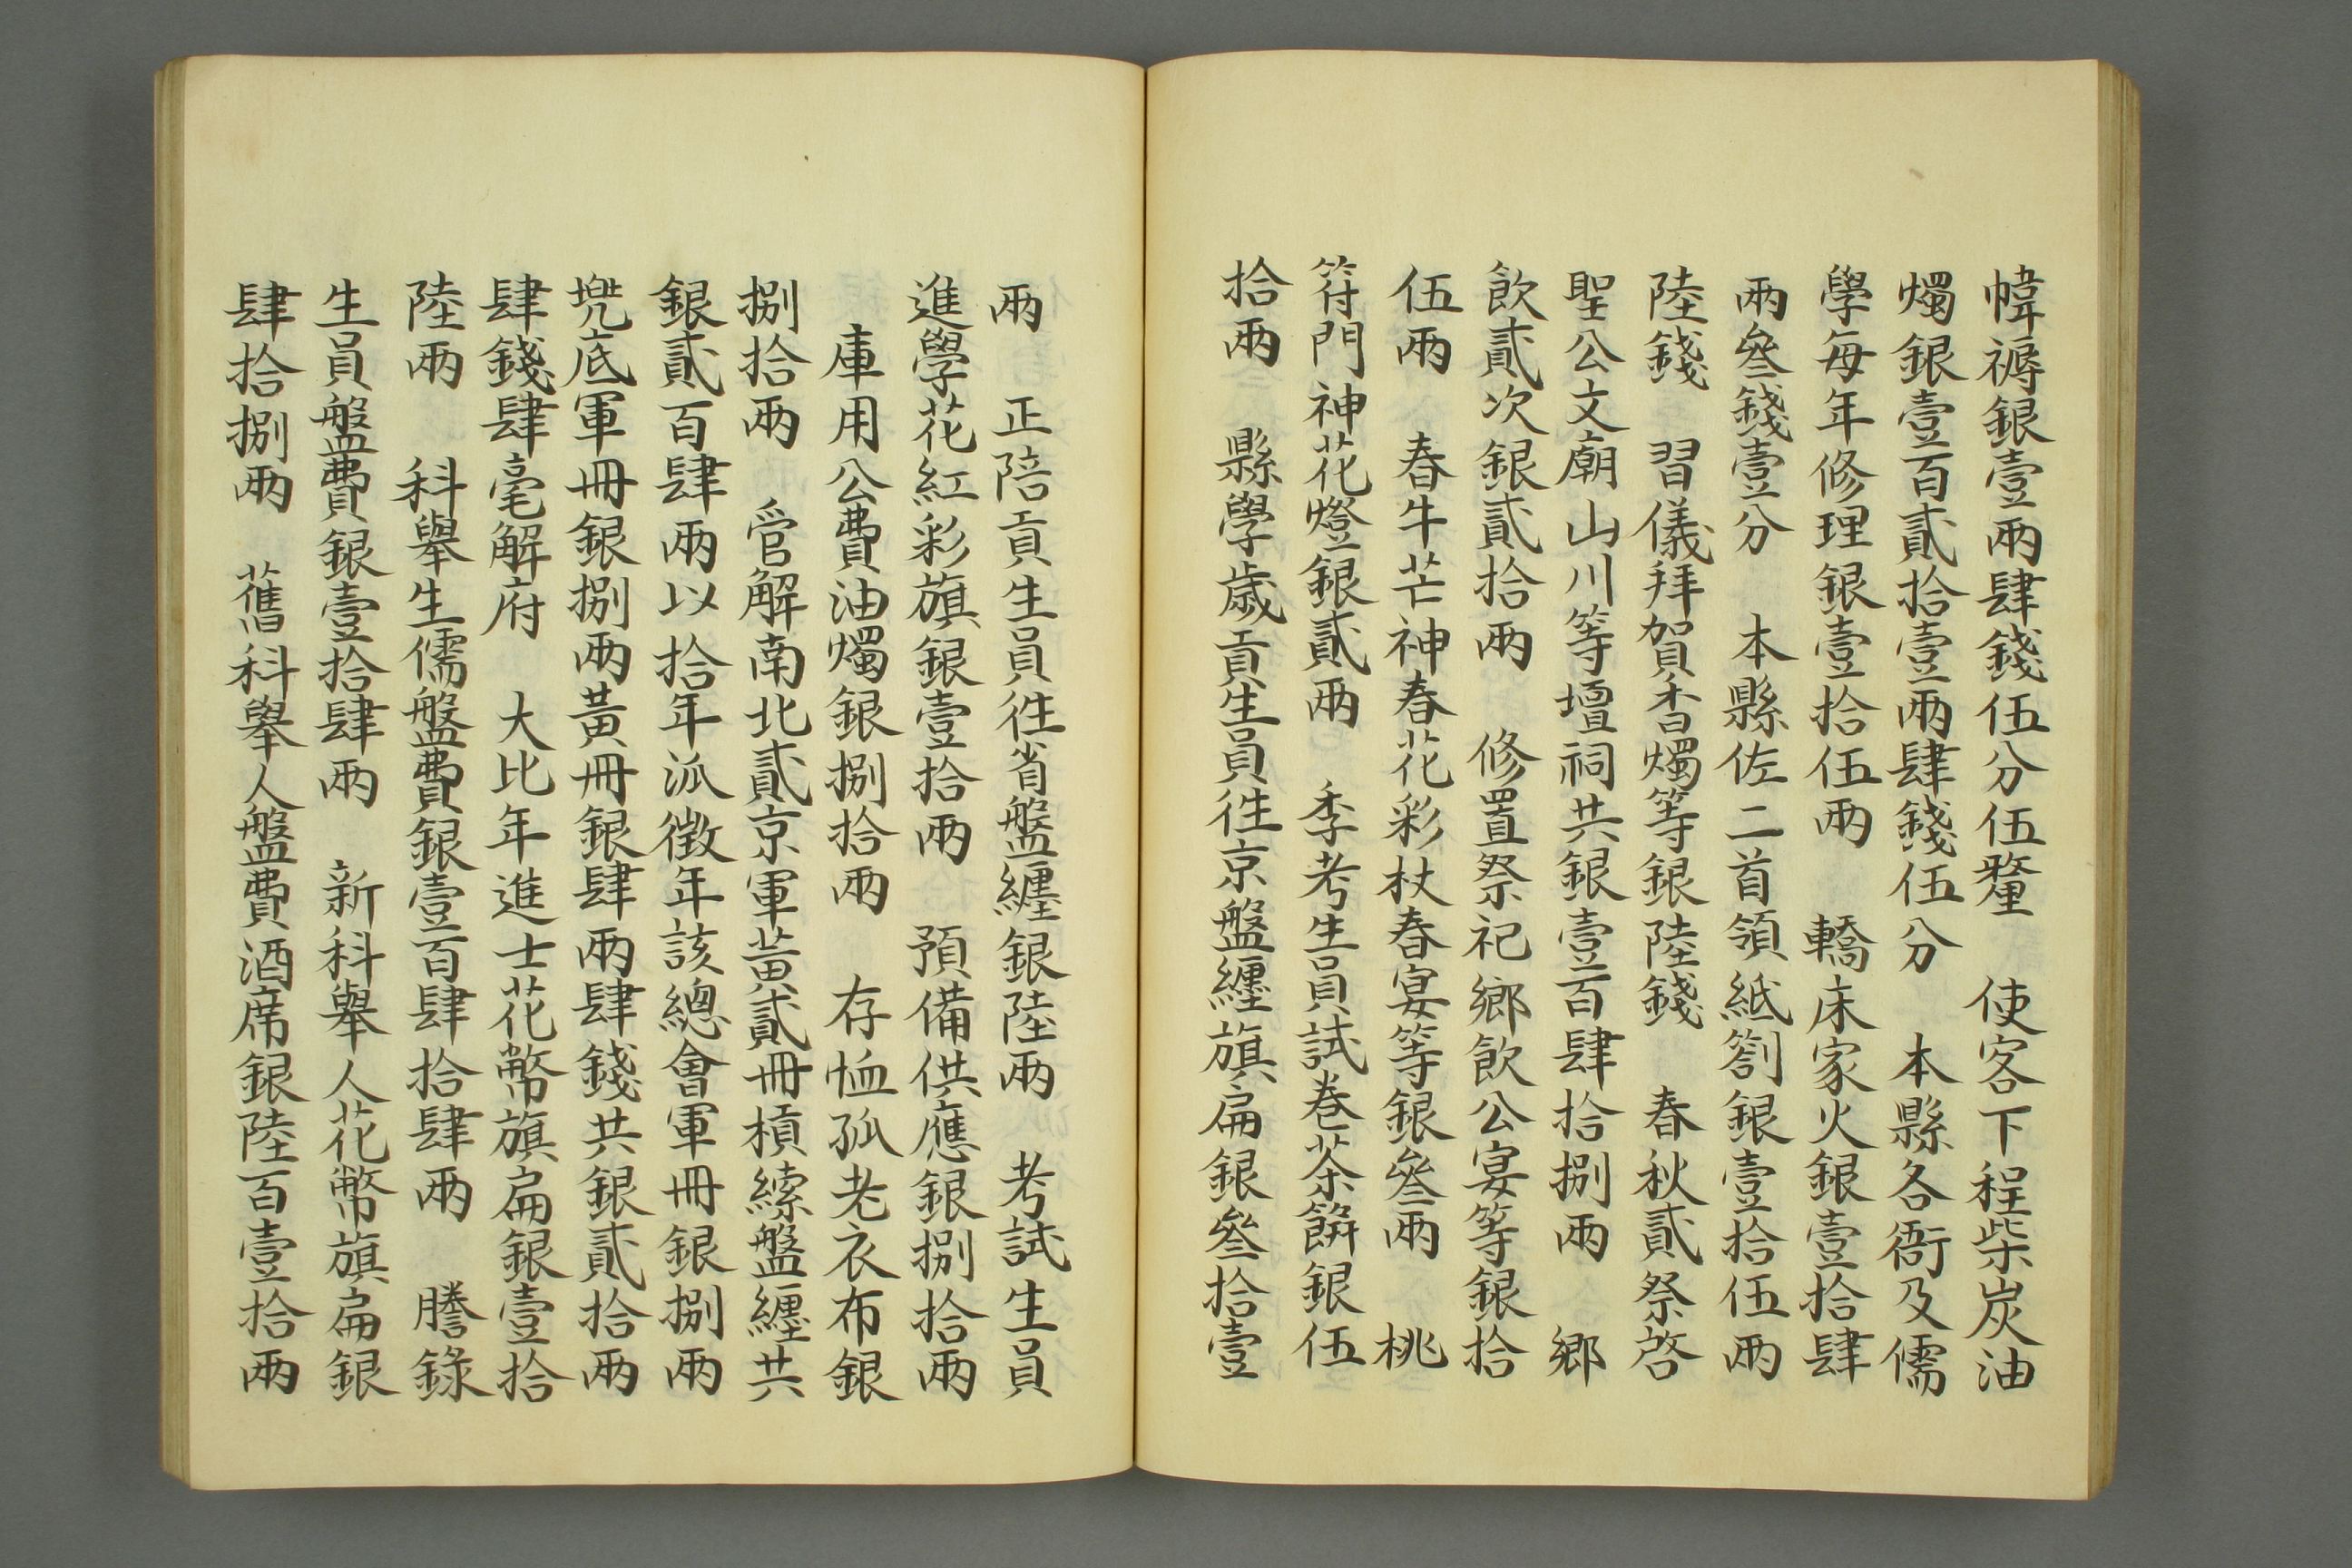 幃褥銀壹兩肆錢伍分伍釐　使客下程柴炭油
燭銀壹百貳拾壹兩肆錢伍分　本縣各衙及儒
學每年修理銀壹拾伍兩　轎床家火銀壹拾肆
兩叄錢壹分　本縣佐二首領紙劄銀壹拾伍兩
陸錢　習儀拜賀香燭等銀陸錢　春秋貳祭啓
聖公文廟山川等壇祠共銀壹百肆拾捌兩　鄉
飲貳次銀貳拾兩　修置祭祀鄉飲公宴等銀拾
伍兩　春牛芒神春花彩杖春宴等銀叄兩　桃
符門神花燈銀貳兩　季考生員試卷茶餅銀伍
拾兩　縣學歲貢生員徃京盤纏旗扁銀叄拾壹
兩　正陪貢生員徃省盤纏銀陸兩　考試生員
進學花紅彩旗銀壹拾兩　預備供應銀捌拾兩
庫用公費油燭銀捌拾兩　存恤孤老衣布銀
捌拾兩　管解南北貳京軍黃貳冊槓繂盤纏共
銀貳百肆兩以拾年派徵年該總會軍冊銀捌兩
兠底軍冊銀捌兩黃冊銀肆兩肆錢共銀貳拾兩
肆錢肆毫解府　大比年進士花幣旗扁銀壹拾
陸兩　科舉生儒盤費銀壹百肆拾肆兩　謄錄
生員盤費銀壹拾肆兩　新科舉人花幣旗扁銀
肆拾捌兩　舊科舉人盤費酒席銀陸百壹拾兩